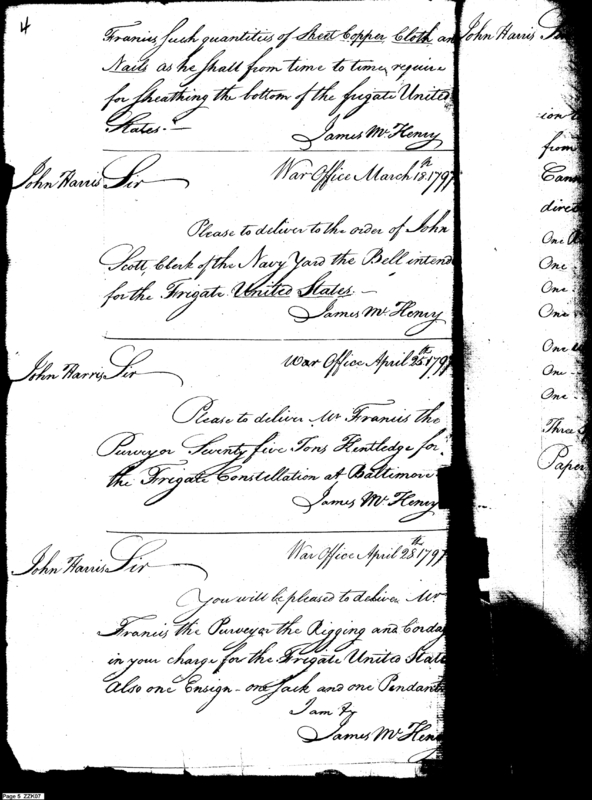 4
Francis such quantities of Sheet Copper Cloth an
Nails as he shall from time to time, require
for sheathing the bottom of the frigate United
States.—
James McHenry
John Harris Sir War Office March 18th 1797
Please to deliver to the order of John
Scott, Clerk of the Navy Yard the Bell intend
for the Frigate United States.—
James McHenry
John Harris Sir War Office April 25th 1797
Please to deliver Mr Francis the
Purveyor Seventy five Tons Kentledge for
the Frigate Constellation at Baltimore
James McHenry
John Harris Sir War Office April 28th 1797
You will be pleased to deliver Mr
Francis the Purveyor the Rigging and Corda
in your charge for the Frigate United Stat
Also one Ensign – one Jack and one Pendant
I am &
James McHenr
John Harris
from
Cann
direc
One
One
One
One
One
One
One
Three
Paper
Page 5 ZZK07